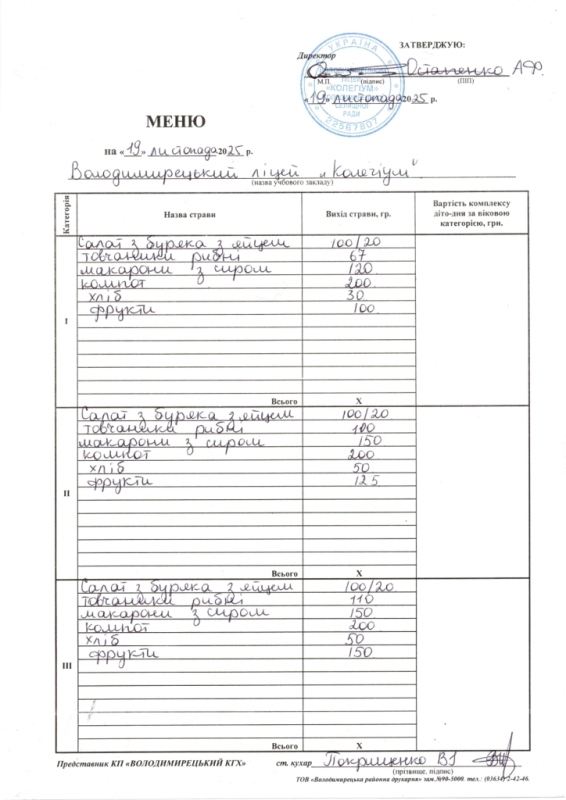 ЗАТВЕРДЖУЮ:
Директор
Остапенко А.Ф.
М.П. (підпис) (ПІП)
УКРАЇНА
«КОЛЕГІУМ»
СЕЛИЩНОЇ
РАДИ
22567807
«19» листопада 2025 р.
МЕНЮ
на «19» листопада 2025 р.
Володимирецький ліцей „Колегіум"
(назва учбового закладу)
Категорія Назва страви Вихід страви, гр. Вартість комплексу діто-дня за віковою категорією, грн.
I
Салат з буряка з яйцем 100/20
товчаники рибні 67
макарони з сиром 120
компот 200
хліб 30
фрукти 100
Всього Х
II
Салат з буряка з яйцем 100/20
товчаники рибні 100
макарони з сиром 150
компот 200
хліб 50
фрукти 125
Всього Х
III
Салат з буряка з яйцем 100/20
товчаники рибні 110
макарони з сиром 150
компот 200
хліб 50
фрукти 150
Всього Х
Представник КП «ВОЛОДИМИРЕЦЬКИЙ КГХ» ст. кухар
(прізвище, підпис)
ТОВ «Володимирецька районна друкарня» зам.№90-5000. тел.: (03634) 2-42-46.